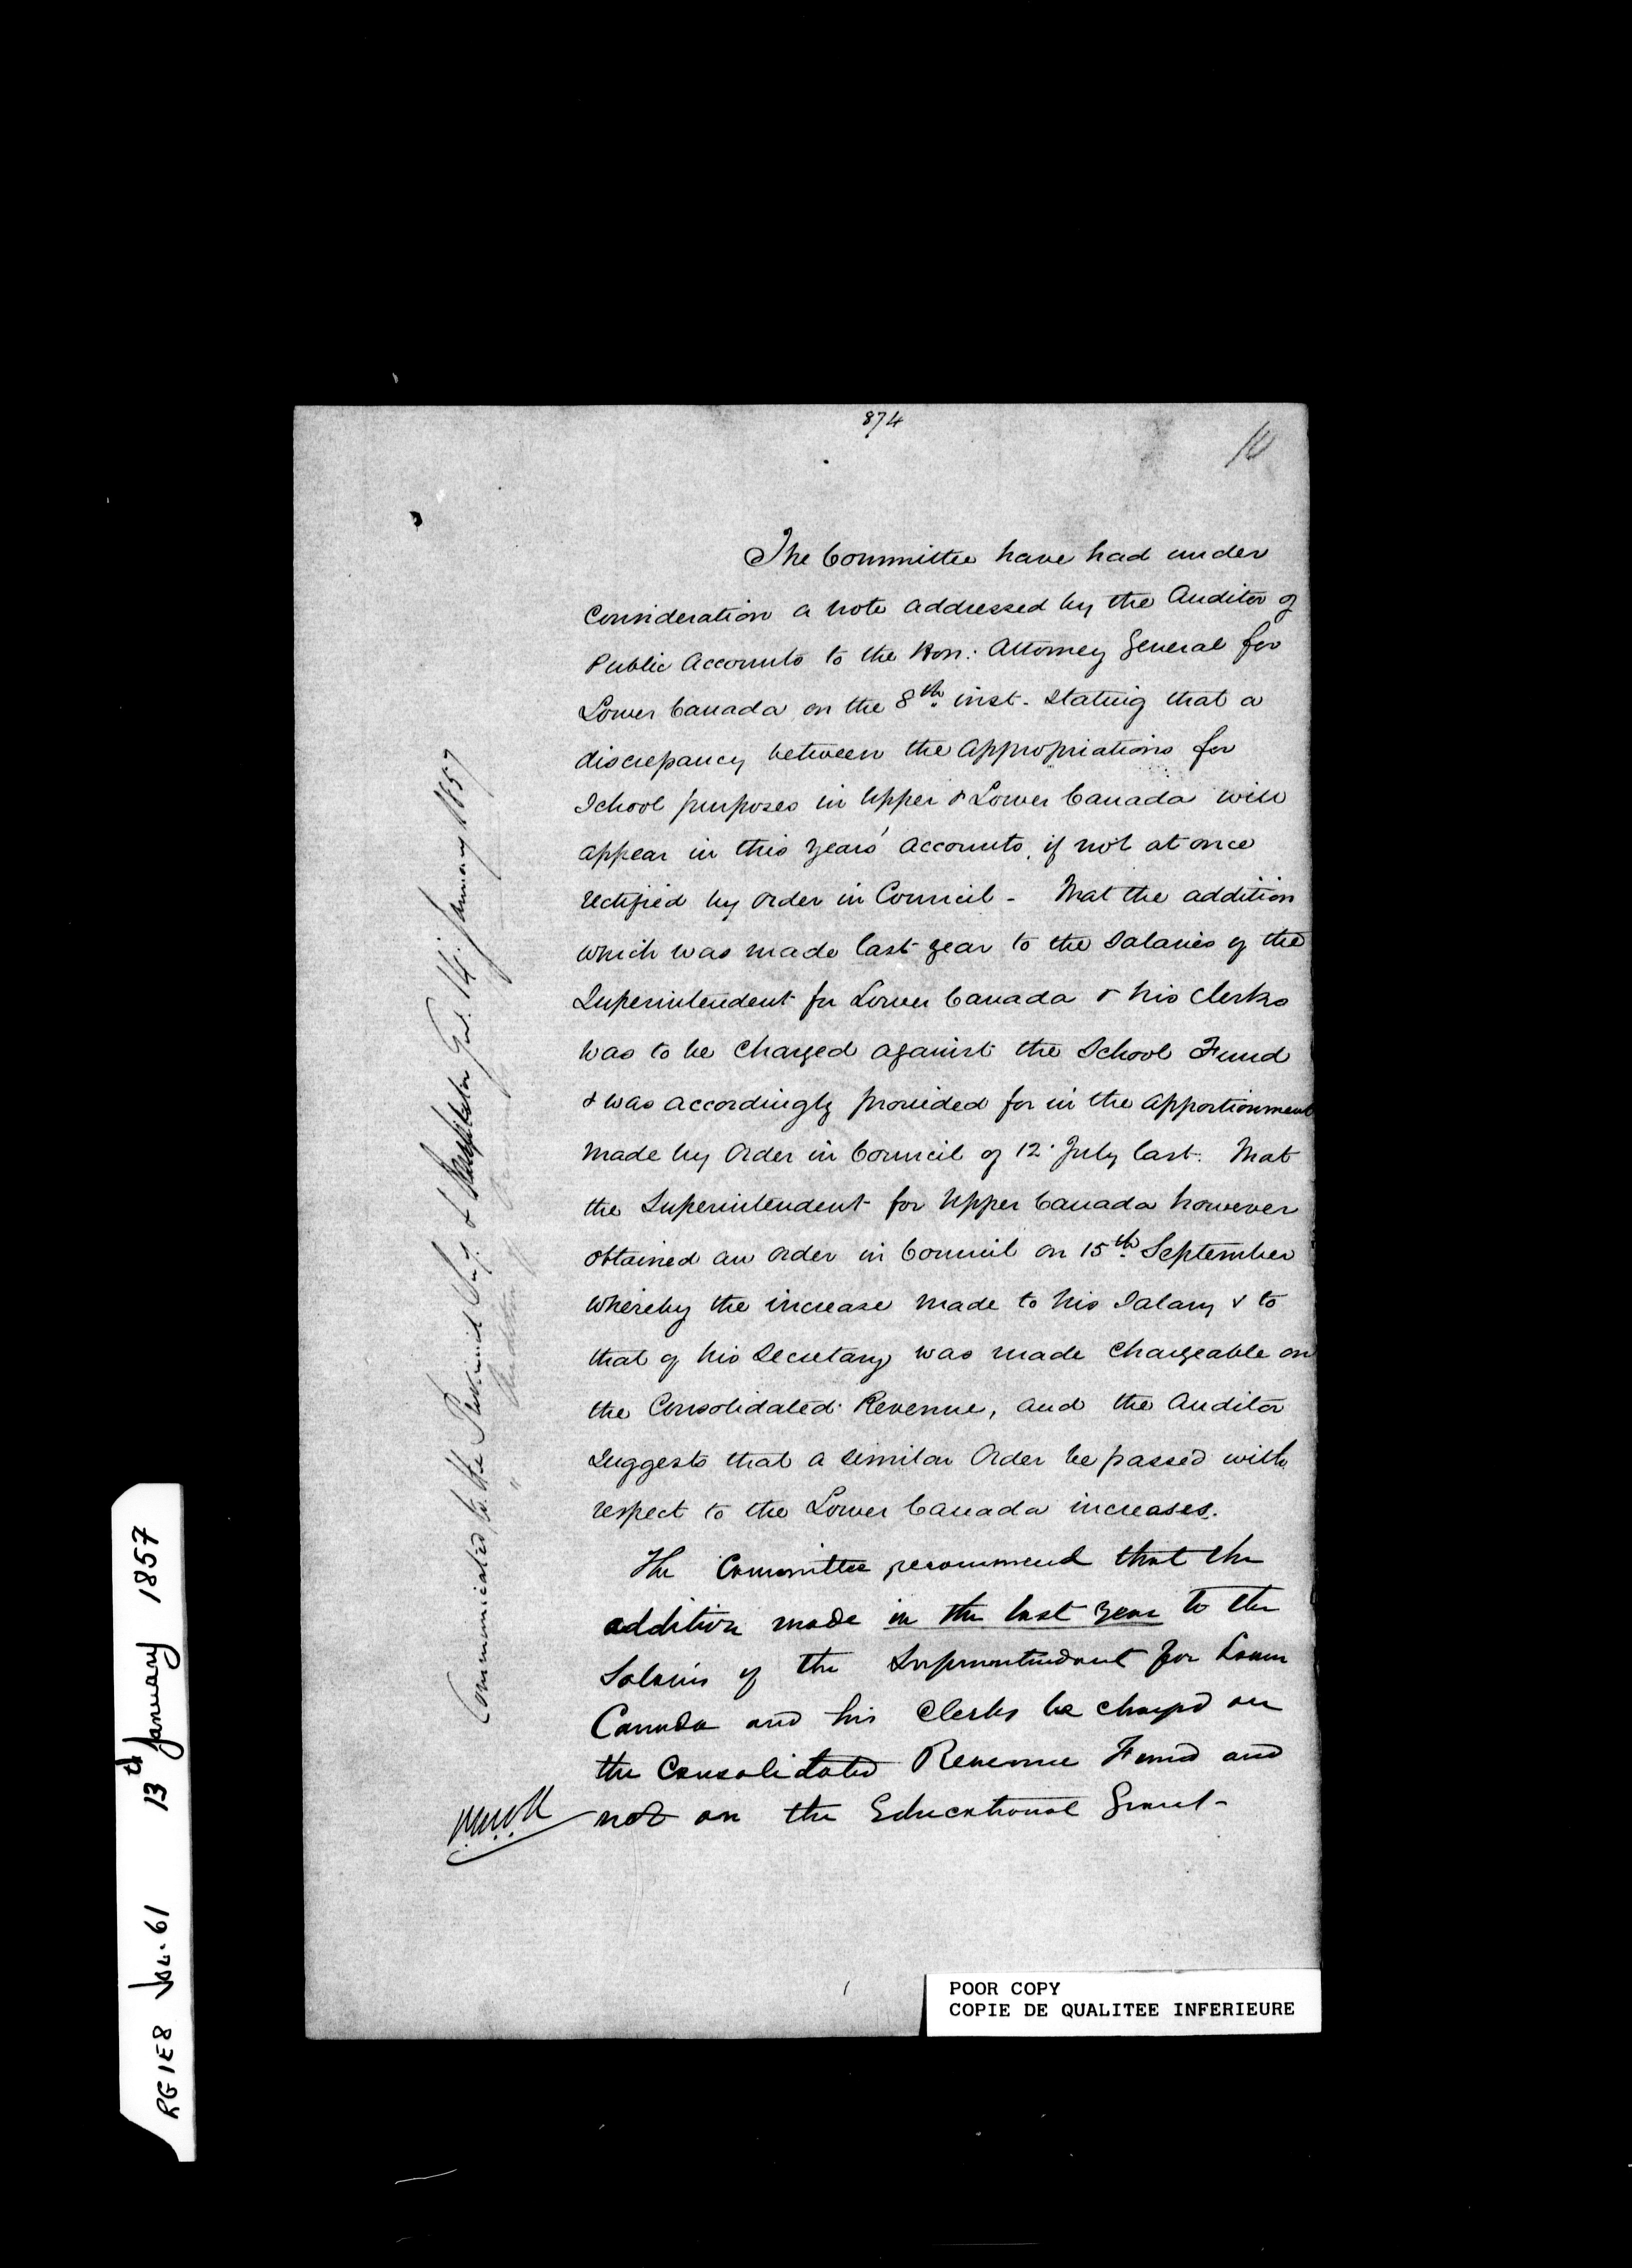 874
The Committee have had under
Consideration a note addressed by the Auditor of
Public Accounts to the Hon: Attorney General for
Lower Canada on the 8th. inst. stating that a
discrepancy between the appropriations for
School purposes in Upper & Lower Canada will
appear in this years' accounts, if not at once
rectified by order in Council - That the addition
which was made last year to the Salaries of the
Superintendent for Lower Canada & his Clerks
was to be charged against the School Fund
& was accordingly provided for in the apportionment
made by Order in Council of 12. July last. That
the Superintendent for Upper Canada however
obtained an order in Council on 15th. September
whereby the increase made to his Salary & to
that of his Secretary was made chargeable on
the Consolidated Revenue, and the Auditor
suggests that a similar Order be passed with
respect to the Lower Canada increases.
The Committee recommend that the
addition made in the last year to the
Salaries of the Superintendent for Lower
Canada and his Clerks be charged on
the Consolidated Revenue Fund and
not on the Educational Grant -
Communicated to the Provincial Secy. & 14. January 1857
RG1E8 Vol. 61 13th January 1857
POOR COPY
COPIE DE QUALITEE INFERIEURE